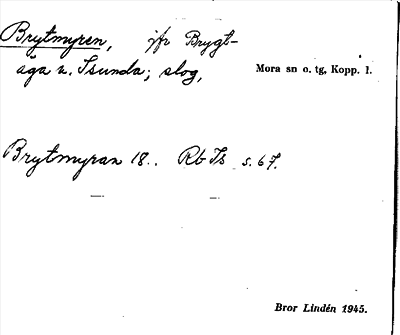 Brytmyren, jfr Brygt-
äga n. Isunda; slog,
Mora sn o. tg, Kopp. l.
Brytmyran 18.. Rb Is s. 67.
Bror Lindén 1945.